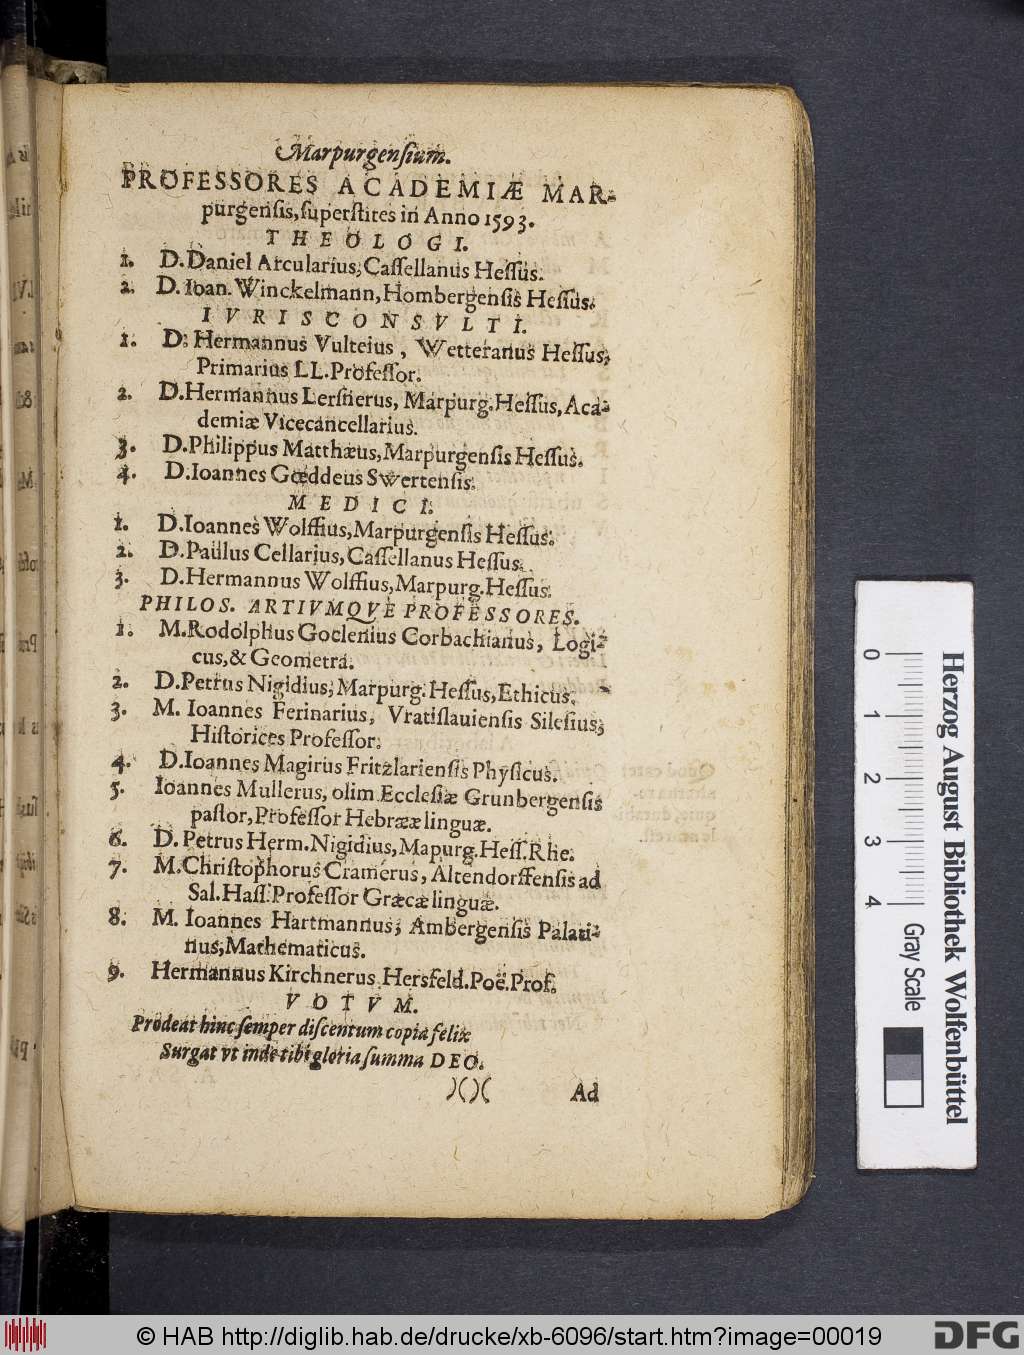 Marpurgenſium.
PROFESSORES ACADEMIÆ MAR-
purgenſis, ſuperſtites in Anno 1593.
THEOLOGI.
1. D. Daniel Arcularius, Caſſellanus Heſſus.
2. D. Ioan. Winckelmann, Hombergenſis Heſſus.
IVRISCONSVLTI.
1. D. Hermannus Vulteius, Wetteranus Heſſus,
Primarius LL. Profeſſor.
2. D. Hermannus Lerſnerus, Marpurg. Heſſus, Aca-
demiæ Vicecancellarius.
3. D. Philippus Matthæus, Marpurgenſis Heſſus.
4. D. Ioannes Gœddeus Swertenſis.
MEDICI.
1. D. Ioannes Wolffius, Marpurgenſis Heſſus.
2. D. Paulus Cellarius, Caſſellanus Heſſus.
3. D. Hermannus Wolffius, Marpurg. Heſſus.
PHILOS. ARTIVMQVE PROFESSORES.
1. M. Rodolphus Goclenius Corbachianus, Logi-
cus, & Geometra.
2. D. Petrus Nigidius, Marpurg. Heſſus, Ethicus.
3. M. Ioannes Ferinarius, Vratiſlauienſis Sileſius,
Hiſtorices Profeſſor.
4. D. Ioannes Magirus Fritzlarienſis Phyſicus.
5. Ioannes Mullerus, olim Eccleſiæ Grunbergenſis
paſtor, Profeſſor Hebrææ linguæ.
6. D. Petrus Herm. Nigidius, Mapurg. Heſſ. Rhe.
7. M. Chriſtophorus Cramerus, Altendorffenſis ad
Sal. Haſſ. Profeſſor Græcæ linguæ.
8. M. Ioannes Hartmannus, Ambergenſis Palati-
nus, Mathematicus.
9. Hermannus Kirchnerus Hersfeld. Poë. Prof.
VOTVM.
Prodeat hinc ſemper diſcentum copia felix
Surgat vt inde tibi gloria ſumma DEO.
)()( Ad
0 1 2 3 4
Herzog August Bibliothek Wolfenbüttel
Gray Scale
© HAB http://diglib.hab.de/drucke/xb-6096/start.htm?image=00019
DFG